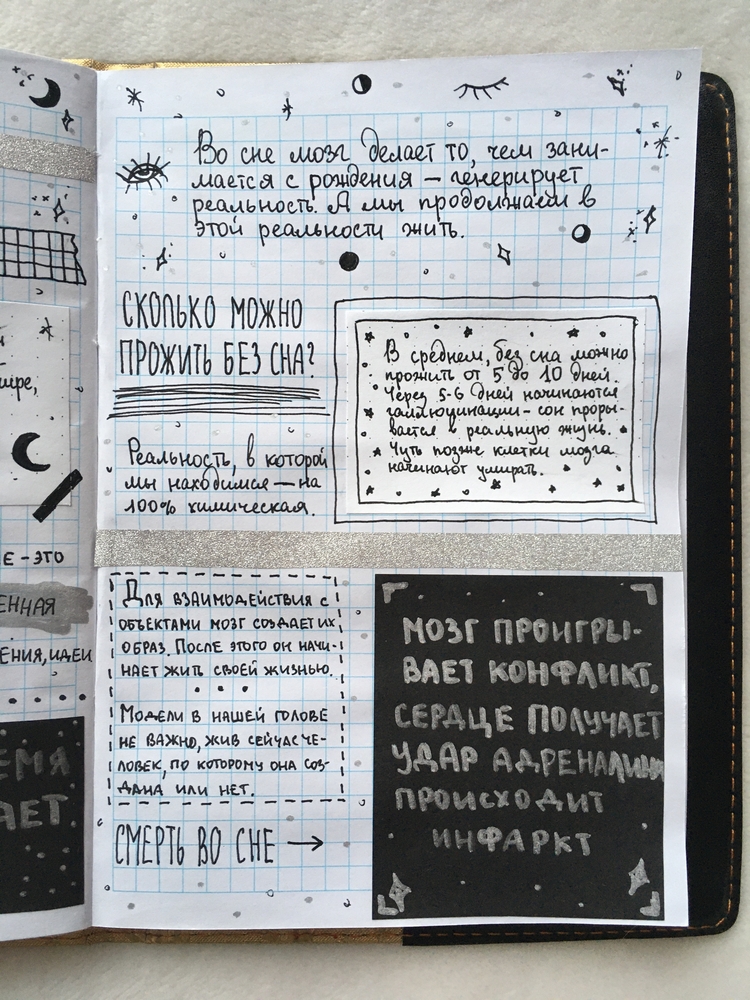 Во сне мозг делает то, чем зани-
мается с рождения — генерирует
реальность. А мы продолжаем в
этой реальности жить.
СКОЛЬКО МОЖНО
ПРОЖИТЬ БЕЗ СНА?
В среднем, без сна можно
прожить от 5 до 10 дней.
Через 5-6 дней начинаются
галлюцинации – сон проры-
вается в реальную жизнь.
Чуть позже клетки мозга
начинают умирать.
Реальность, в которой
мы находимся — на
100% химическая.
ДЛЯ ВЗАИМОДЕЙСТВИЯ С
ОБЪЕКТАМИ МОЗГ СОЗДАЕТ ИХ
ОБРАЗ. ПОСЛЕ ЭТОГО ОН НАЧИ-
НАЕТ ЖИТЬ СВОЕЙ ЖИЗНЬЮ.
МОДЕЛИ В НАШЕЙ ГОЛОВЕ
НЕ ВАЖНО, ЖИВ СЕЙЧАС ЧЕ-
ЛОВЕК, ПО КОТОРОМУ ОНА СОЗ-
ДАНА ИЛИ НЕТ.
СМЕРТЬ ВО СНЕ →
МОЗГ ПРОИГРЫ-
ВАЕТ КОНФЛИКТ,
СЕРДЦЕ ПОЛУЧАЕТ
УДАР АДРЕНАЛИНА
ПРОИСХОДИТ
ИНФАРКТ
Е – ЭТО
ЕННАЯ
ЕНИЯ, ИДЕИ
ЕМЯ
АЕТ